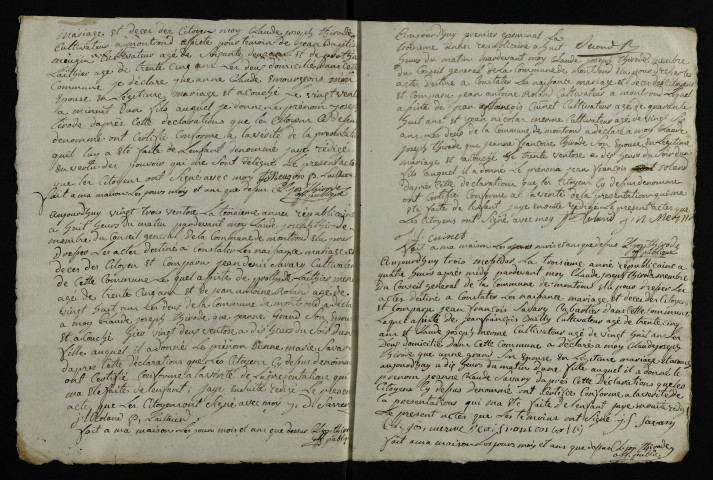 mariage et deces des Citoyen moy Claude joseph thirode
Cultivateur a montrond assisté pour temoin de jean Baptiste
mougin Cultivateur agé de Soixante deux ans et de
Laithier age de trente cinq ans Les deux domicilié dans cette
Commune je declare que anne Claude Bourgeois mon
Epouse en Legitime mariage est acouché Le vingt
a minuit dun fils auquel je donne Le prénom joseph
tirode dapres Cette declarations que les Citoyens Cy desus
denommé ont Certifié Conforme a la vérité de la presentation
quil luy a été faite de Lenfant denommé jaye rédigé
en vertu des pouvoir qui me sont délégué Le present acte
que les Citoyens ont Signé avec moy mougin P. Laithier
fait a ma maison Les jours mois et ans que desus Cl jos thirode
off publique
aujourdhuy vingt trois ventose La troisieme année republiquaine
a huit heurs du matin pardevant moy Claude joseph thirode
membre du Conseil general de la Commune de montrond elu pour
Dresser Les actes destiné a Constater Les naisance mariage et
deces des Citoyen Est Comparu jean denis Savary Cultivateur
de Cette Commune Le quel assisté de Laithier
agé de trente Cinq ans et de jean antoine Rolans agé de
vingt huit ans Les deux de la Commune de montrond a declaré
a moy Claude joseph thirode que jeanne Grand Son Epouse
est acouché hier vingt deux ventose a dix heurs du Soir dune
fille auquel il a donné Le prénom Jeanne marie Savary
dapres cette déclarations que Les Citoyens Cy desus denommé
ont Certifié Conforme a la verité de La presentation qui
ma été faite de lenfant jaye ensuite redigé Le present
acte que Les Citoyens ont Signé avec moy
j. Rolans P. Laithier
fait a ma maison Les jours mois et ans que desus Cl jos thirode
off publique
aujourdhuy premier germinal La
troisieme année republicaine a huit Second
heurs du matin pardevant moy Claude joseph thirode membre
du Conseil general de la commune de montrond elu pour dresser les
actes destiné a Constater La naisance mariage et deces des Citoyens
est comparu jean antoine Roland Cultivateur a montrond
assisté de jean francois Cuinet Cultivateur agé de quarente
huit ans et jean nicolas menne Cultivateur agé de vingt
ans Les deux de la Commune de montrond a déclaré a moy Claude
joseph thirode que jeanne francoise thirode Son Epouse en Legitime
mariage est acouché Le trente ventose a dix heurs du Soir dun
fils auquel il a donné Le prenom jean françois Rolans
Dapres cette déclarations que les Citoyen Cy desus denommé
ont Certifié Conforme a la verité de la presentation qui ma
été faite de Lenfant jaye ensuite redigé Le present acte que
Les Citoyens ont Signé avec moy
j. f. Cuinet
fait a ma maison Les jours mois et ans que desus Cl jos thirode
off publique
Aujourdhuy trois mesidor La troisieme année républicaine a
quatre heurs après midy pardevant moy Claude joseph thirode membre
du Conseil general de la commune de montrond elu pour dresser les
actes destiné a Constater Les naisance mariage et deces des Citoyens
est Comparu jean françois Savary dans cette commune
Lequel assisté de jean françois Cultivateur agé de trente cinq
ans et Claude joseph menne Cultivateur agé de vingt huit ans Les
deux domiciliés dans Cette Commune a déclaré a moy Claude joseph
thirode que anne grand Son Epouse en Legitime mariage est acouché
aujourdhuy a dix heurs du matin dune fille auquel il a donné le
prenom jeanne Claude Savary dapres Cette Déclarations que les
Citoyens Cy desus denommé ont Certifié Conforme a la verité de
la presentations qui ma été faite de lenfant jaye ensuite rédigé
Le present actes que Les temoins ont Signé j f Savary
Cl jos menne
fait a ma maison Les jours mois et ans que desus Cl jos thirode
off public